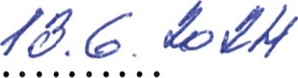 13.6.2024
..........